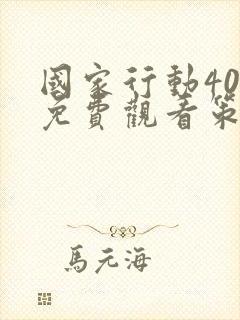 國家行動40
免費觀看策
馬元海